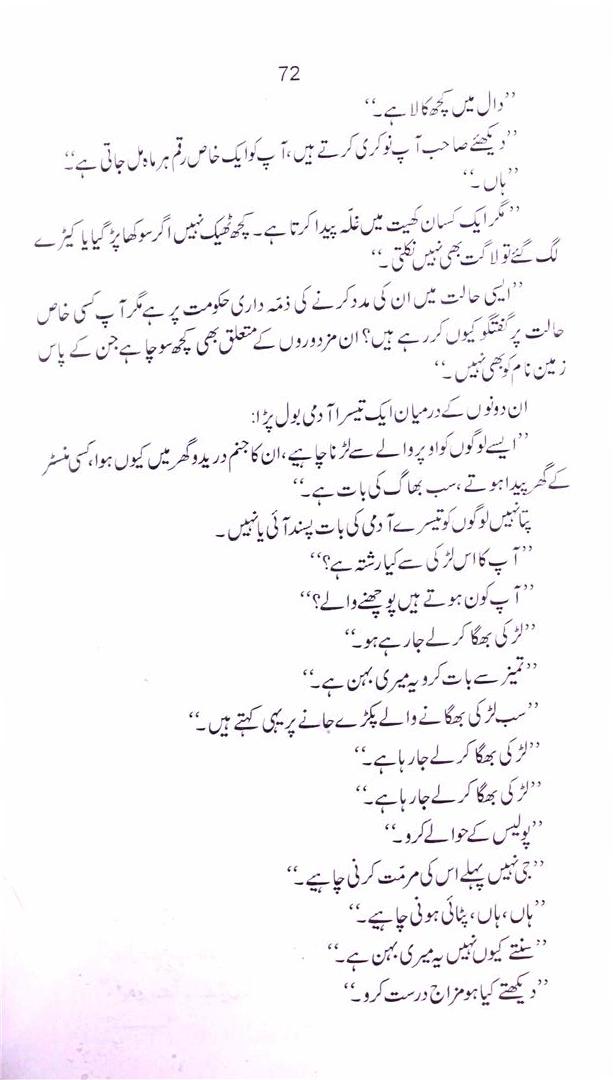 72
’’دال میں کچھ کالا ہے۔‘‘
’’دیکھئے صاحب آپ نوکری کرتے ہیں، آپ کو ایک خاص رقم ہر ماہ مل جاتی ہے۔‘‘
’’ہاں۔‘‘
’’مگر ایک کسان کھیت میں غلّہ پیدا کرتا ہے۔ کچھ ٹھیک نہیں اگر سوکھا پڑ گیا یا کیڑے
لگ گئے تو لاگت بھی نہیں نکلتی۔‘‘
’’ایسی حالت میں ان کی مدد کرنے کی ذمّہ داری حکومت پر ہے مگر آپ کسی خاص
حالت پر گفتگو کیوں کر رہے ہیں؟ ان مزدوروں کے متعلق بھی کچھ سوچا ہے جن کے پاس
زمین نام کو بھی نہیں۔‘‘
ان دونوں کے درمیان ایک تیسرا آدمی بول پڑا:
’’ایسے لوگوں کو اوپر والے سے لڑنا چاہیے، ان کا جنم دریدو گھر میں کیوں ہوا، کسی منسٹر
کے گھر پیدا ہوتے، سب بھاگ کی بات ہے۔‘‘
پتا نہیں لوگوں کو تیسرے آدمی کی بات پسند آئی یا نہیں۔
’’آپ کا اس لڑکی سے کیا رشتہ ہے؟‘‘
’’آپ کون ہوتے ہیں پوچھنے والے؟‘‘
’’لڑکی بھگا کر لے جا رہے ہو۔‘‘
’’تمیز سے بات کرو یہ میری بہن ہے۔‘‘
’’سب لڑکی بھگانے والے پکڑے جانے پر یہی کہتے ہیں۔‘‘
’’لڑکی بھگا کر لے جا رہا ہے۔‘‘
’’لڑکی بھگا کر لے جا رہا ہے۔‘‘
’’پولیس کے حوالے کرو۔‘‘
’’جی نہیں پہلے اس کی مرمّت کرنی چاہیے۔‘‘
’’ہاں، ہاں، پٹائی ہونی چاہیے۔‘‘
’’سنتے کیوں نہیں یہ میری بہن ہے۔‘‘
’’دیکھتے کیا ہو مزاج درست کرو۔‘‘